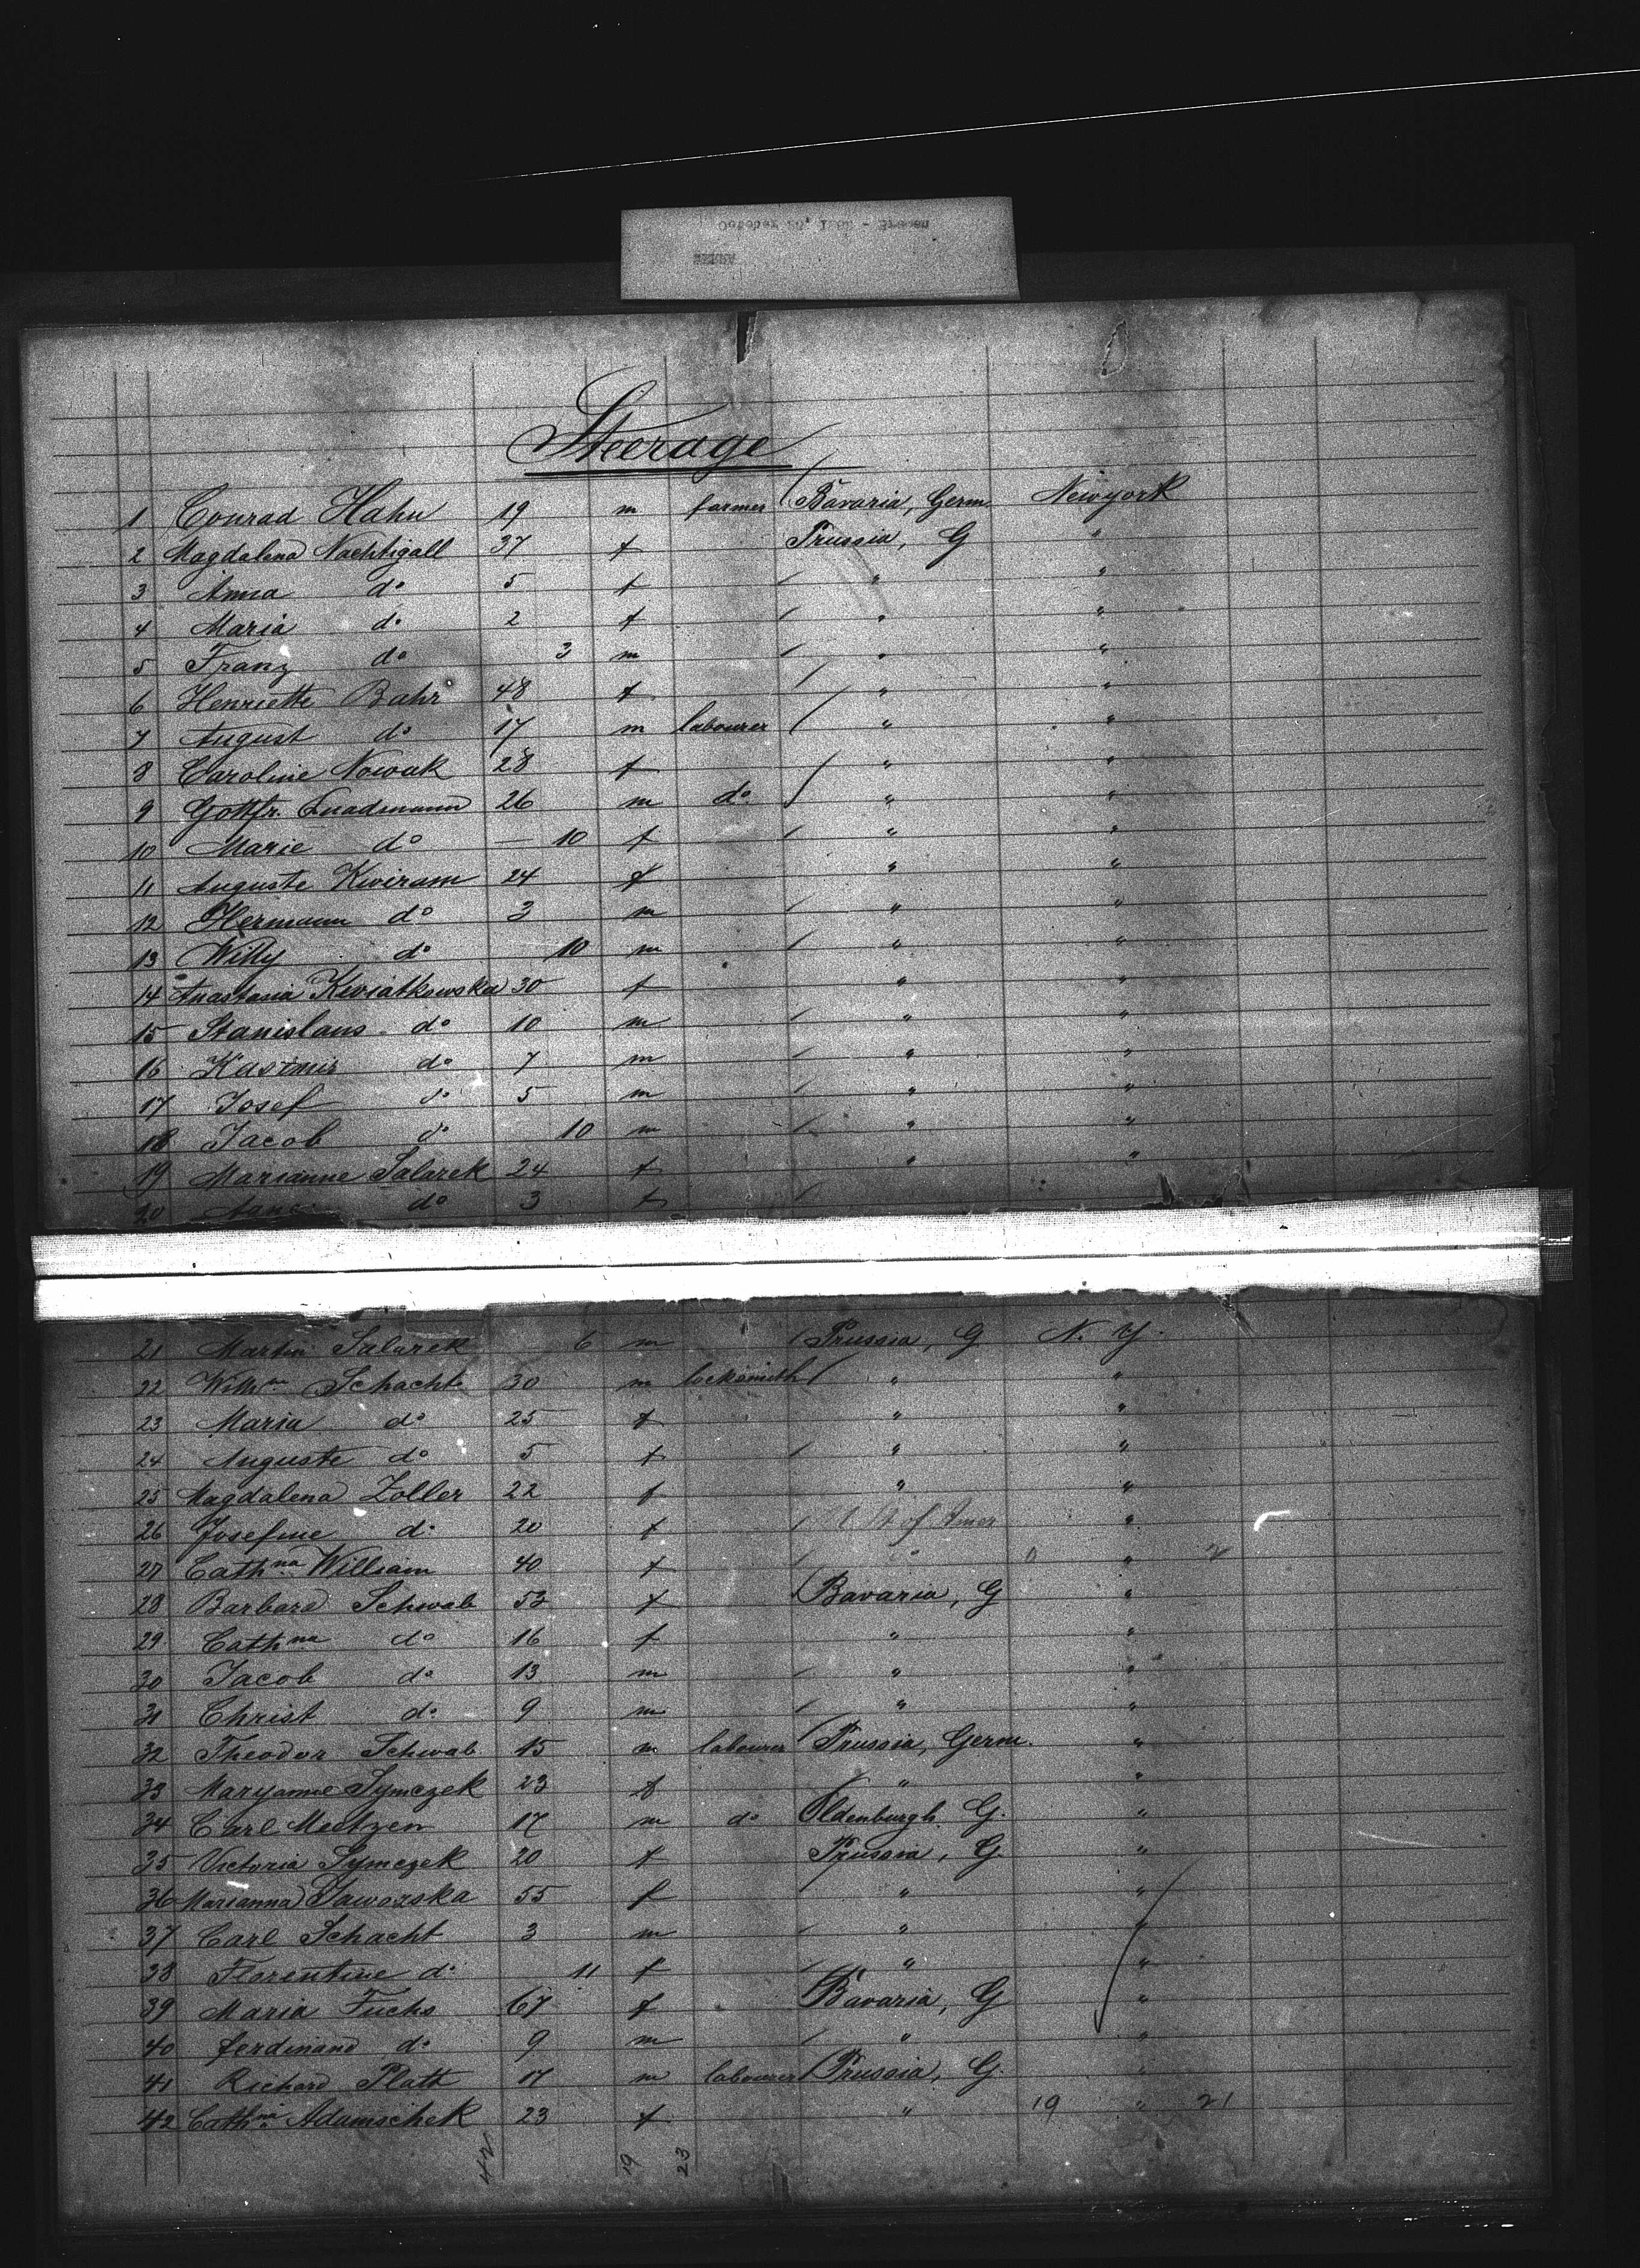 Steerage
1 Conrad Hahn 19 m farmer Bavaria, Germ. Newyork
2 Magdalena Nachtigall 37 f Prussia, G "
3 Anna do 5 f " "
4 Maria do 2 f " "
5 Franz do 3 m " "
6 Henriette Bahr 48 f " "
7 August do 17 m labourer " "
8 Caroline Nowak 28 f " "
9 Gottfr. 26 m do " "
10 Marie do — 10 f " "
11 Auguste Kwiram 24 f " "
12 Hermann do 3 m " "
13 Willy do 10 m " "
14 Anastasia Kwiatkowska 30 f " "
15 Stanislaus do 10 m " "
16 Kasimir do 7 m " "
17 Josef do 5 m " "
18 Jacob do 10 m " "
19 Marianne Salarek 24 f " "
20 do 3 f
21 Martin Salarek 6 m Prussia, G N. Y.
22 Wilhm Schacht 30 m locksmith " "
23 Maria do 25 f " "
24 Auguste do 5 f " "
25 Magdalena Zoller 22 f " "
26 Josefine do 20 f U St of Amer "
27 Cathna William 40 f " "
28 Barbara Schwab 53 f Bavaria, G "
29 Cathna do 16 f " "
30 Jacob do 13 m " "
31 Christ do 9 m " "
32 Theodor Schwab 15 m labourer Prussia, Germ. "
33 Maryanne Symczek 23 f " "
34 Carl Meetzen 17 m do Oldenburgh G. "
35 Victoria Symczek 20 f Prussia, G. "
36 Marianna Jaworska 55 f " "
37 Carl Schacht 3 m " "
38 Florentine do 11 f " "
39 Maria Fuchs 67 f Bavaria, G "
40 ferdinand do 9 m " "
41 Richard Plath 17 m labourer Prussia, G. "
42 Cathna Adamschek 23 f " 19 " 21
42 19 23